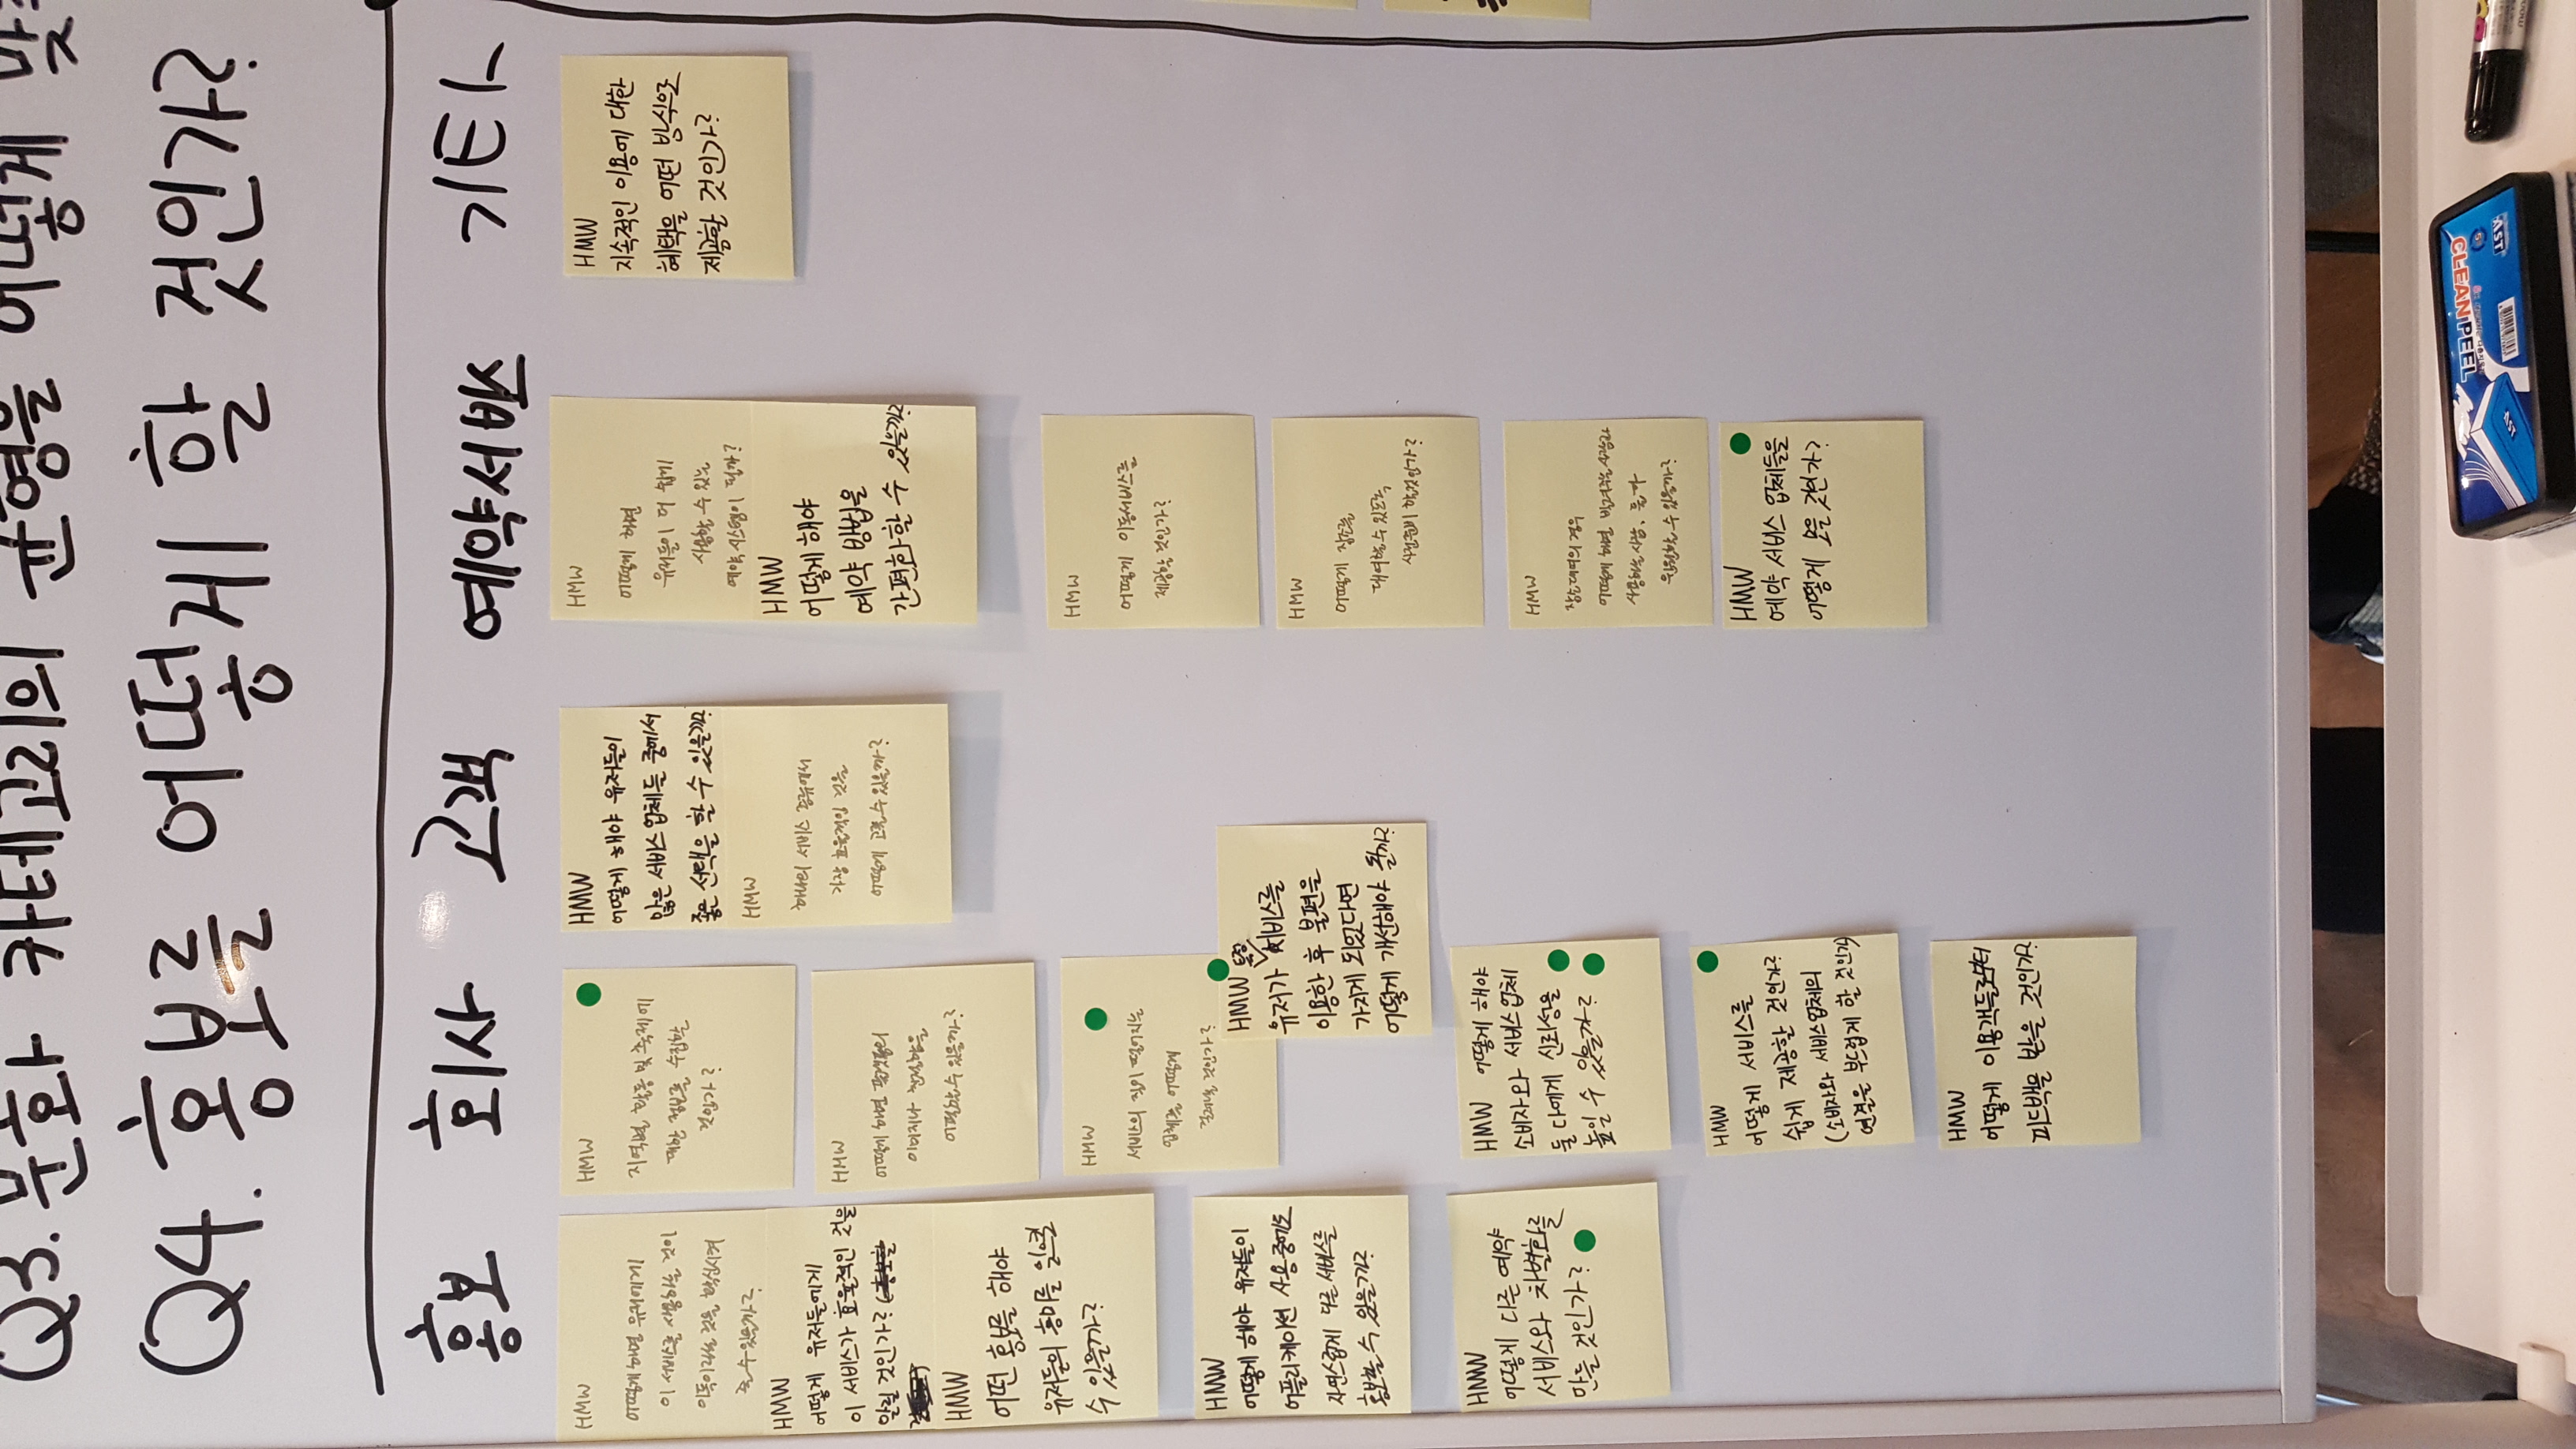 Q3. 문화 카테고리의 균형을 어떻게
Q4. 홍보를 어떻게 할 것인가?
홍보
회사
고객
예약서비스
기타
HMW
어떻게 하면 유저에게
이 서비스를 사용하는 것이
이득이라는 것을 확신시켜
줄 수 있을까?
HMW
어떻게 유저들에게
이 서비스가 효율적인 것을
알릴 것인가?
HMW
어떤 홍보를 해야
유저들의 흥미를 일으킬
수 있을까?
HMW
어떻게 해야 유저들이
어플리케이션 사용 중에도
자연스럽게 다른 서비스를
홍보할 수 있을까?
HMW
어떻게 다른 예약
서비스와 차별화를
만들 것인가?
HMW
지역별 활동 및 축제에
대한 정보를 수집할
것인가?
HMW
어떻게 하면 플랫폼의
이미지나 친절함을
어필할 수 있을까?
HMW
서비스의 질이 떨어지는
업체를 어떻게
걸러낼 것인가?
HMW 특정
유저가 서비스를
이용한 후 불편을
가지게 되었다면
어떻게 개선해야 될까?
HMW 어떻게 해야
소비자와 서비스 업체
둘 다에게 신뢰성을
높일 수 있을까?
HMW
어떻게 서비스를
쉽게 제공할 것인가?
(소비자와 서비스업체의
연결을 부드럽게 할 것인가)
HMW
어떻게 이용객들로부터
피드백을 받을 것인가?
HMW
어떻게 해야 유저들이
많은 서비스 업체들 중에서
좋은 선택을 할 수 있을까?
HMW
하나의 서비스 종류에서
가장 효율적인 것을
어떻게 고를 수 있을까?
HMW
어떻게 하면
유저들이 더 쉽게
사용할 수 있는
예약 시스템이 될까?
HMW
어떻게 해야
예약 방법을
간편화할 수 있을까?
HMW
어떻게 이동서비스를
제공할 것인가?
HMW
어떻게 장소를
대여할 수 있도록
사전준비 할것인가?
HMW
장소대여의 경우
어떻게 하면 빌려주는 사람과
사용하는 사람, 둘 다
윈윈할 수 있을까?
HMW
예약 서비스 업체들을
어떻게 모을 것인가?
HMW
지속적인 이용에 대한
혜택을 어떤 방식으로
제공할 것인가?
CLEAN PEEL
AST
AST